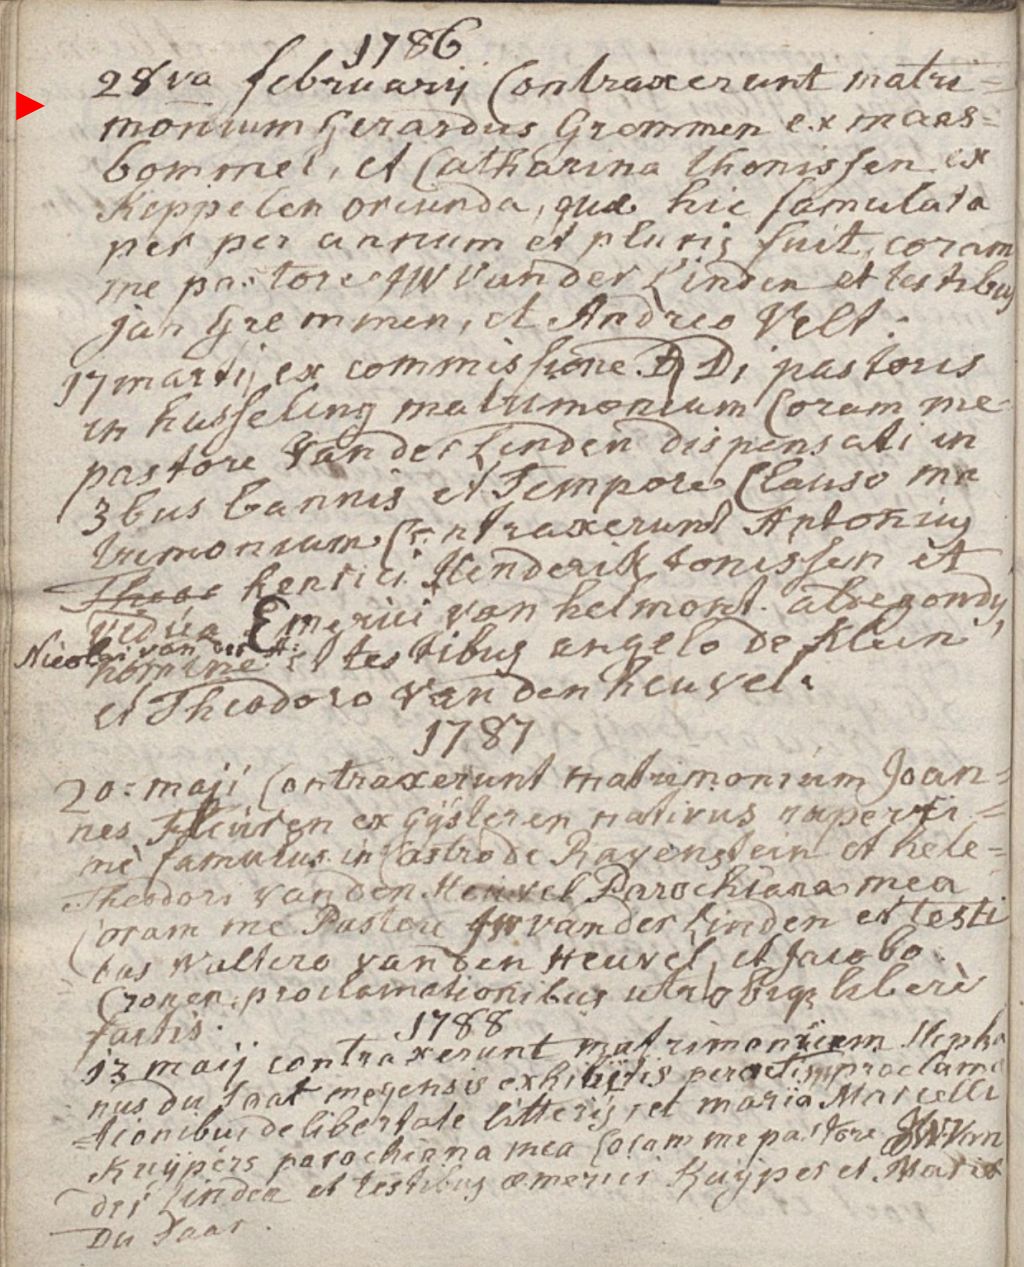 1786
28va februarij Contraxerunt matri=
monium Gerardus Gremmen ex maas=
bommel, et Catharina thonissen ex
Keppelen oriunda, quae hic famulata
per annum et pluris fuit, coram
me pastore JW Vander Linden et testibus
jan Gremmen, et Andreo Velt.
17 martij ex commissione D Di pastoris
in husseling matrimonium Coram me
pastore Vander Linden dispensati in
3bus bannis et Tempore Clauso ma
trimonium Contraxerunt Antonius
henrici Henderik tonissen et
vidua Emerici van helmont aldegondis,
Nicolai van der
nomine et testibus angelo de Klein
et Theodoro Van den heuvel.
1787
20: maji Contraxerunt matrimonium Joan=
nes Fleuren ex Gijsteren nativus nuper
me famulus in Castro de Ravenstein et hele=
Theodori Van den Heuvel Parochiana mea
Coram me Pastore JW vander Linden et testi
bus Waltero van den Heuvel, et Jacobo
Cronen, proclamationibus utrobique liberè
factis.
1788
13 maij contraxerunt matrimonium Stepha
nus du Saar meyensis exhibitis peractis proclama
=tionibus de libertate litteris, et maria Marcelli
Kuijpers parochiana mea Coram me pastore JW Van
der Linden et testibus aemerici Kuijper et Maria
Du Saar.